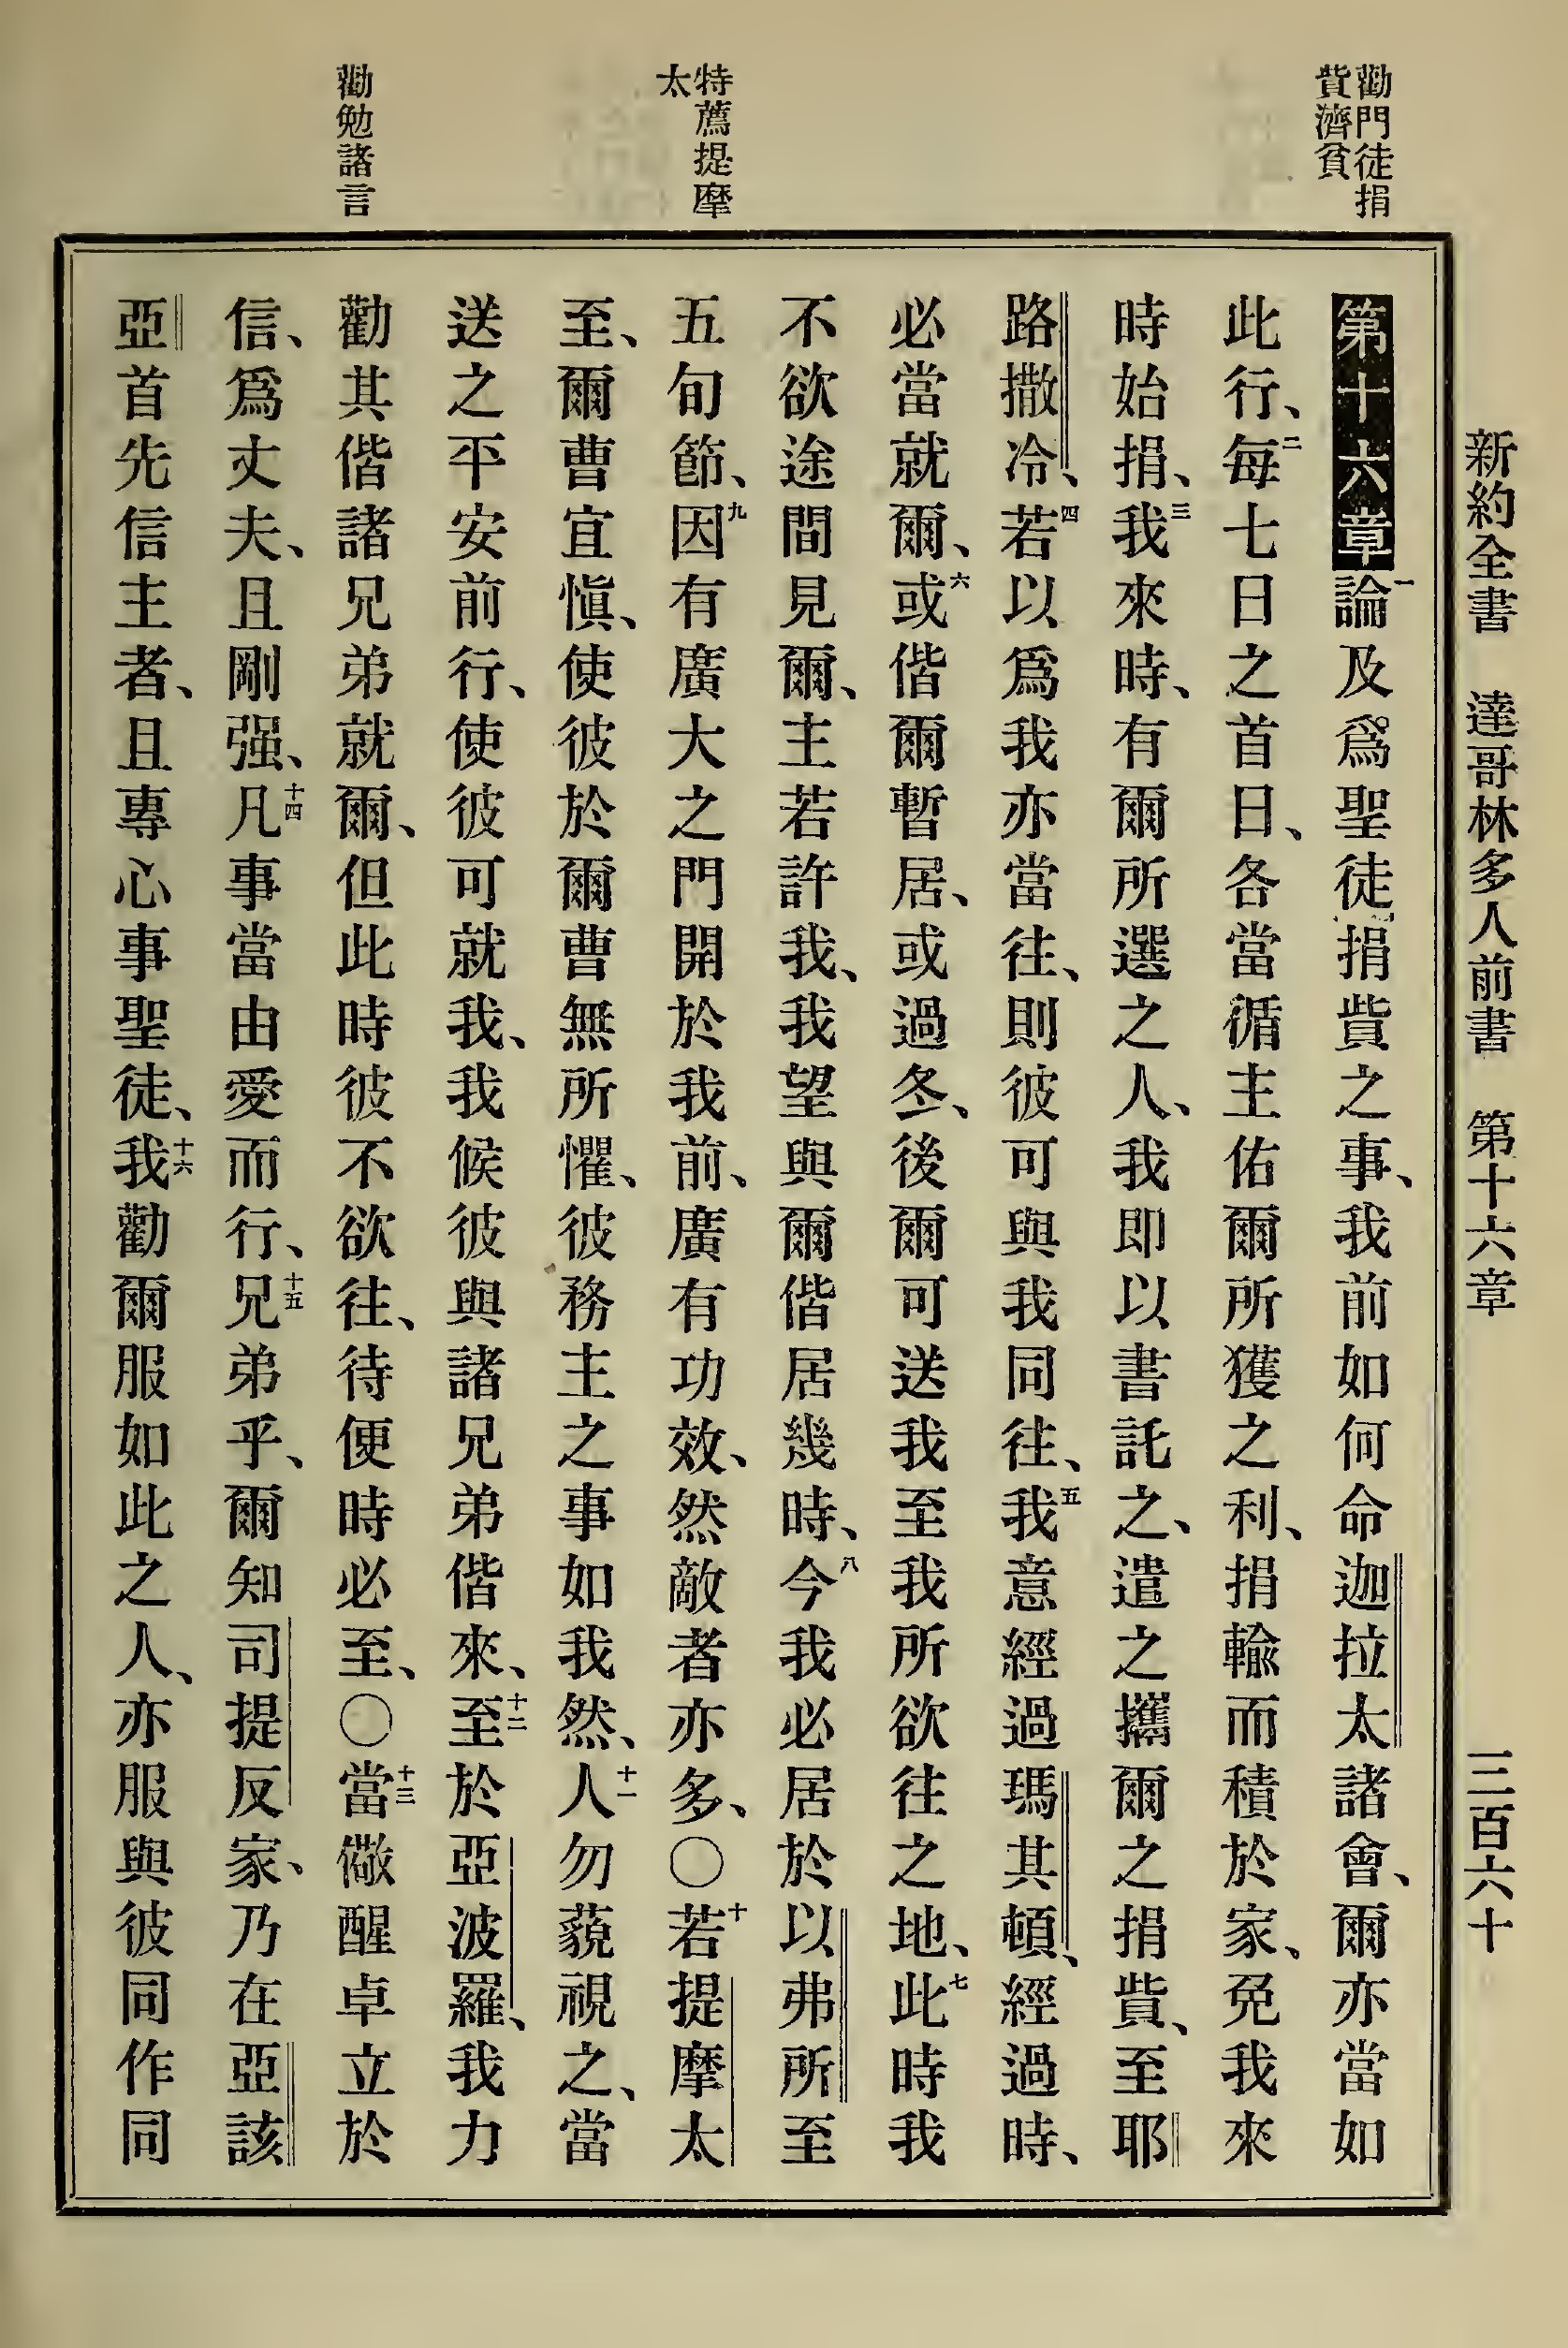 新約全書 達哥林多人前書 第十六章 三百六十
勸門徒捐
貲濟貧
特薦提摩
太
勸勉諸言
第十六章一論及爲聖徒捐貲之事、我前如何命迦拉太諸會、爾亦當如
此行、二每七日之首日、各當循主佑爾所獲之利、捐輸而積於家、免我來
時始捐、三我來時、有爾所選之人、我即以書託之、遣之攜爾之捐貲、至耶
路撒冷、四若以爲我亦當往、則彼可與我同往、五我意經過瑪其頓、經過時、
必當就爾、六或偕爾暫居、或過冬、後爾可送我至我所欲往之地、七此時我
不欲途間見爾、主若許我、我望與爾偕居幾時、八今我必居於以弗所至
五旬節、九因有廣大之門開於我前、廣有功效、然敵者亦多、○十若提摩太
至、爾曹宜愼、使彼於爾曹無所懼、彼務主之事如我然、十一人勿藐視之、當
送之平安前行、使彼可就我、我候彼與諸兄弟偕來、十二至於亞波羅、我力
勸其偕諸兄弟就爾、但此時彼不欲往、待便時必至、○十三當儆醒卓立於
信、爲丈夫、且剛强、十四凡事當由愛而行、十五兄弟乎、爾知司提反家、乃在亞該
亞首先信主者、且專心事聖徒、十六我勸爾服如此之人、亦服與彼同作同